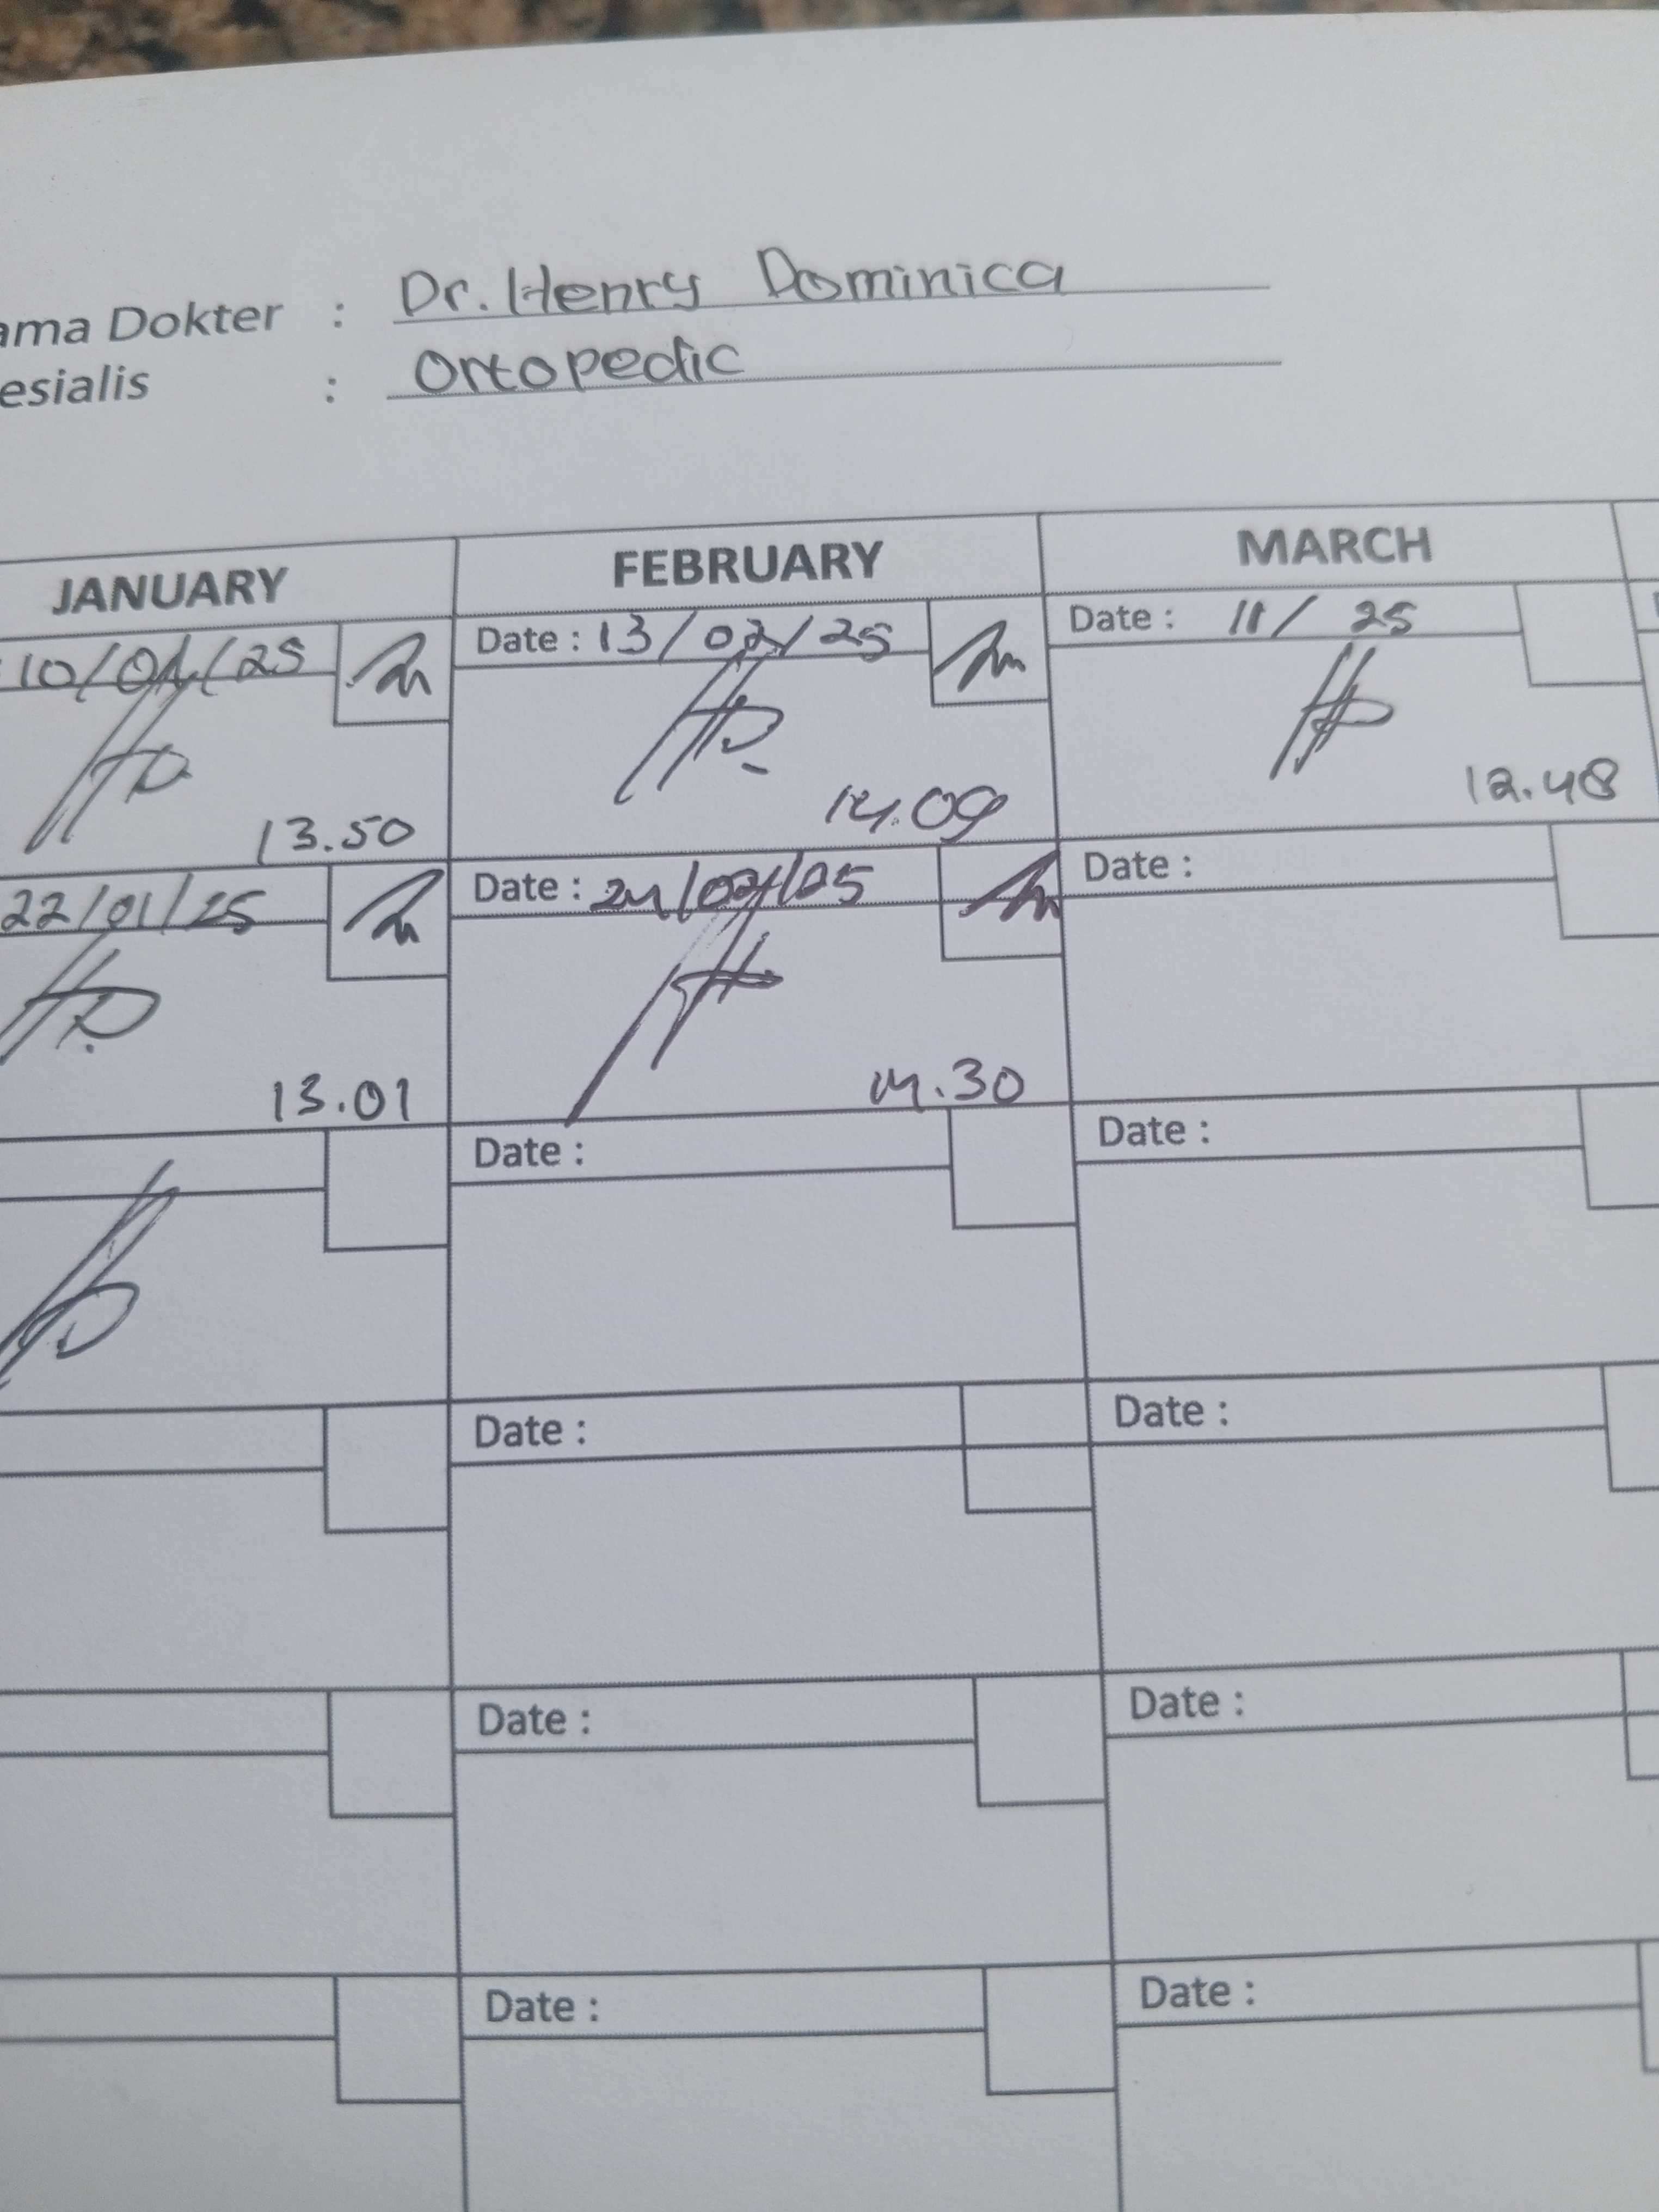 ama Dokter : Dr. Henry Dominica
esialis : Ortopedic
JANUARY FEBRUARY MARCH
: 10/01/25 Date : 13/02/25 Date : 11/ 25
13.50 14.09 12.48
22/01/25 Date : 24/02/25 Date :
13.01 14.30
Date : Date :
Date : Date :
Date : Date :
Date : Date :